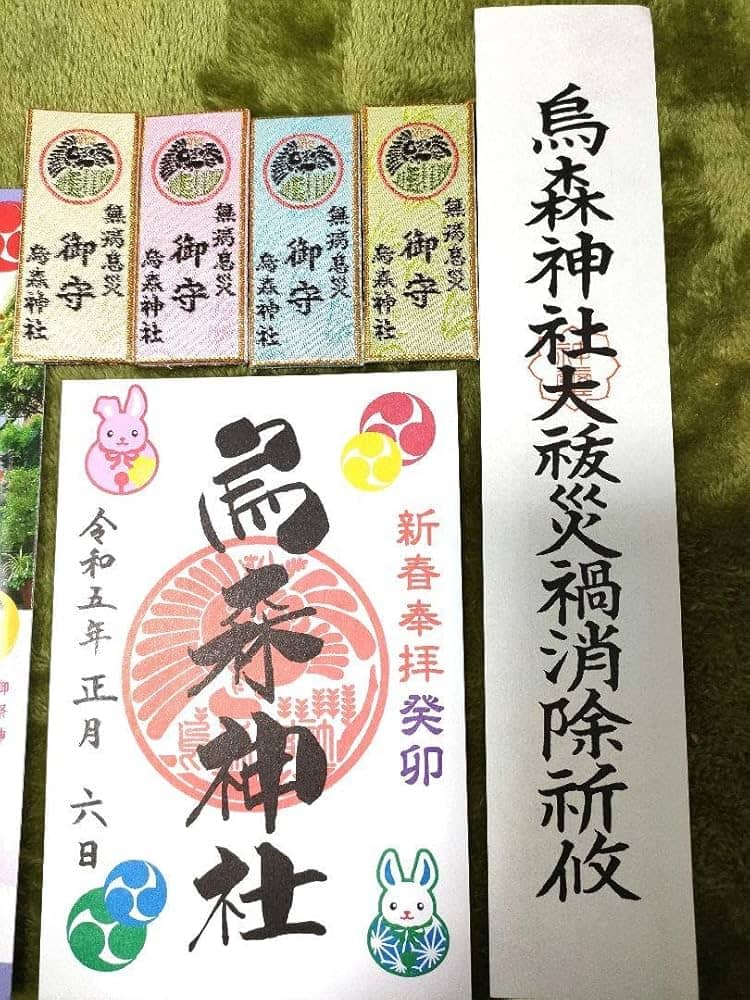 無病息災
御守
烏森神社
無病息災
御守
烏森神社
無病息災
御守
烏森神社
無病息災
御守
烏森神社
烏森神社大祓災禍消除祈攸
新春奉拝癸卯
烏森神社
令和五年正月六日
御祭神